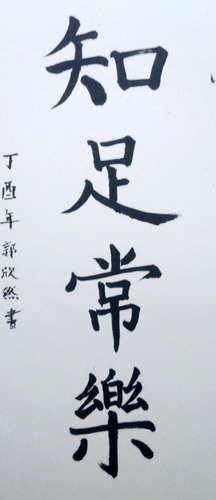 知足常樂
丁酉年郭欣然書